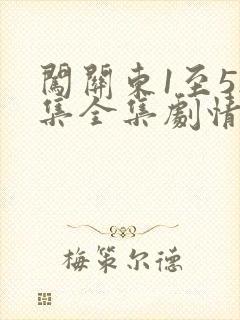 闖關東1至5
集全集劇情
梅策尔德